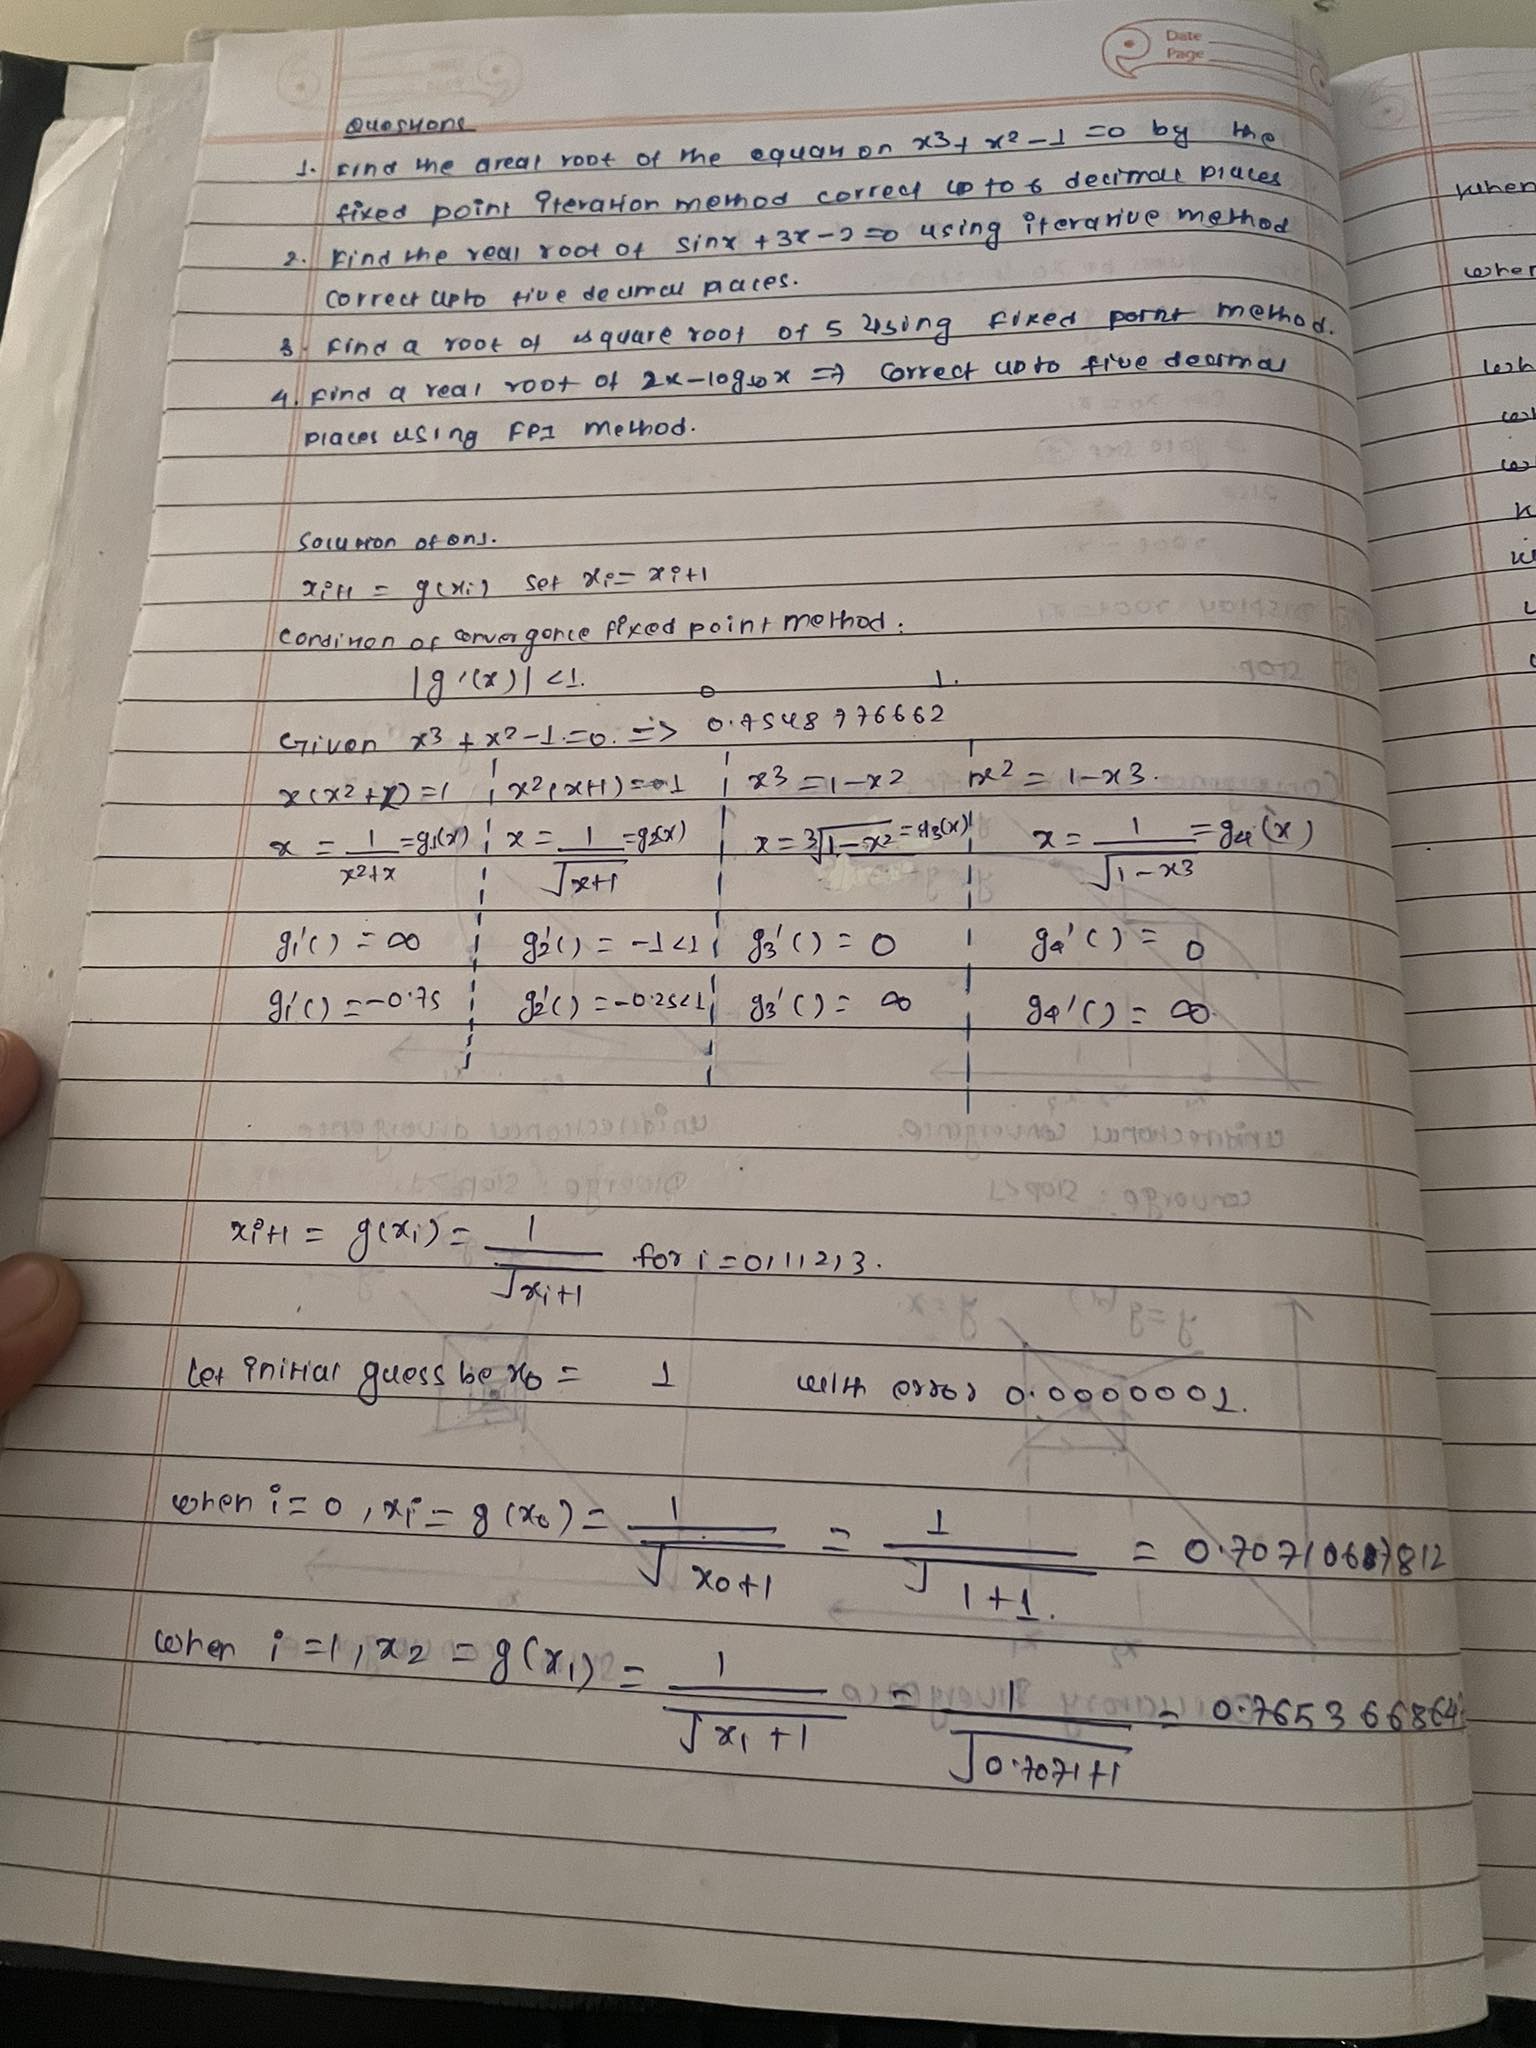 Date
Page
Questions
1. Find the areal root of the equation x3 + x2 - 1 = 0 by the
fixed point iteration method correct up to 6 decimal places
2. Find the real root of sinx + 3x - 2 = 0 using iterative method
correct upto five decimal places.
3. Find a root of square root of 5 using fixed point method.
4. Find a real root of 2x - log10 x = 7 correct up to five decimal
places using FPI method.
Solution of qn1.
xi+1 = g(xi) set xi = xi+1
Condition of convergence fixed point method:
|g'(x)| < 1.
0 1.
Given x3 + x2 - 1 = 0. => 0.7548776662
x(x2 + x) = 1 x2(x+1) = 1 x3 = 1 - x2 x2 = 1 - x3.
x = 1/x2+x = g1(x) x = 1/√x+1 = g2(x) x = 3√1-x2 = g3(x) x = 1/√1-x3 = g4(x)
g1'() = ∞ g2'() = -1 < 1 g3'() = 0 g4'() = 0
g1'() = -0.75 g2'() = -0.25 < 1 g3'() = ∞ g4'() = ∞
xi+1 = g(xi) = 1/√xi+1 for i = 0,1,2,3.
Let initial guess be x0 = 1 with error 0.0000001.
when i = 0, xi = g(x0) = 1/√x0+1 = 1/√1+1. = 0.7071067812
when i = 1, x2 = g(x1) = 1/√x1+1 = 1/√0.7071+1 = 0.765366864
when
wher